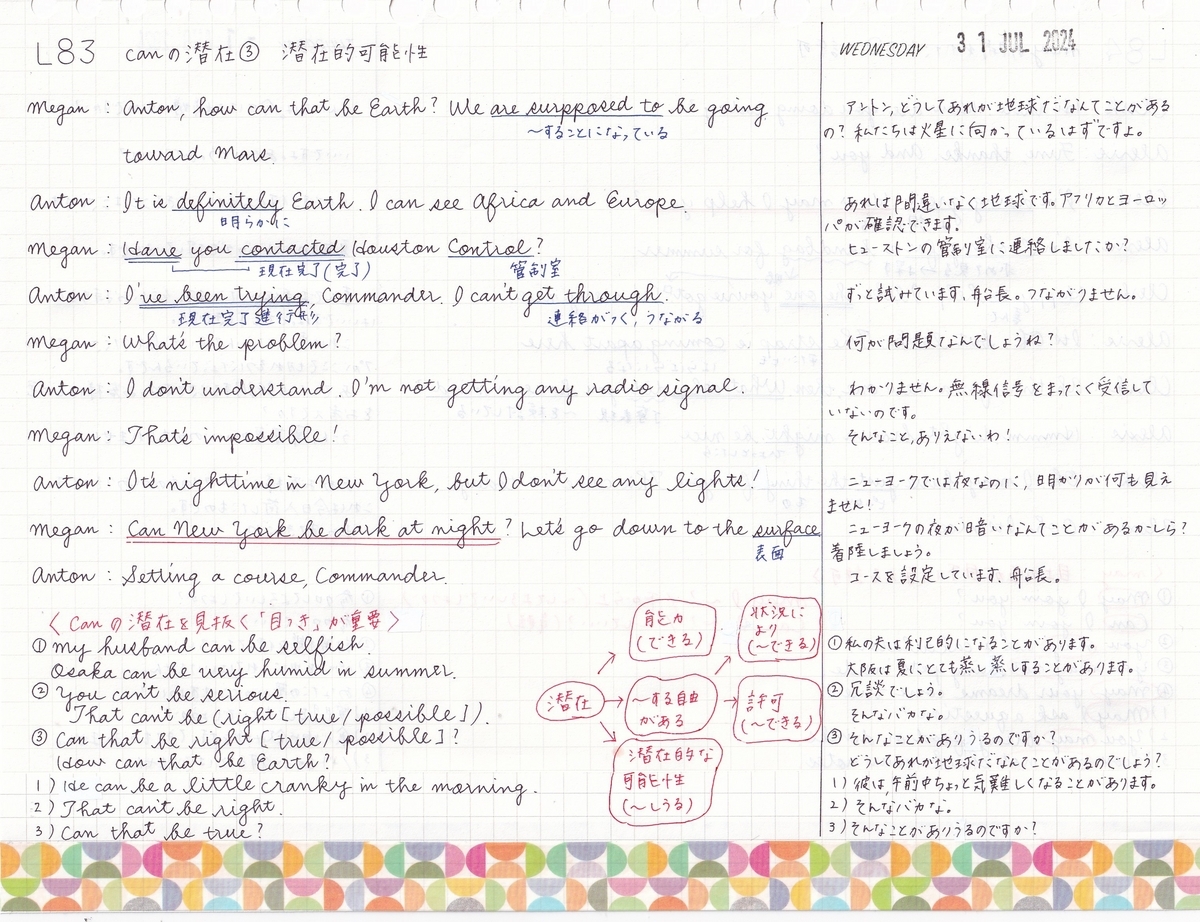 L83 canの潜在③ 潜在的可能性
WEDNESDAY 31 JUL 2024
Megan : Anton, how can that be Earth? We are surpposed to be going
～することになっている
toward Mars.
Anton : It is definitely Earth. I can see Africa and Europe.
明らかに
Megan : Have you contacted Houston Control?
現在完了(完了) 管制室
Anton : I've been trying, Commander. I can't get through.
現在完了進行形 連絡がつく, つながる
Megan : What's the problem?
Anton : I don't understand. I'm not getting any radio signal.
Megan : That's impossible!
Anton : It's nighttime in New York, but I don't see any lights!
Megan : Can New York be dark at night? Let's go down to the surface.
表面
Anton : Setting a course, Commander.
アントン, どうしてあれが地球だなんてことがある
の? 私たちは火星に向かっているはずですよ。
あれは間違いなく地球です。アフリカとヨーロッ
パが確認できます。
ヒューストンの管制室に連絡しましたか?
ずっと試みています, 船長。つながりません。
何が問題なんでしょうね?
わかりません。無線信号をまったく受信して
いないのです。
そんなこと, ありえないわ!
ニューヨークでは夜なのに, 明かりが何も見え
ません!
ニューヨークの夜が暗いなんてことがあるかしら?
着陸しましょう。
コースを設定しています, 船長。
〈 canの潜在を見抜く「目つき」が重要 〉
① my husband can be selfish.
Osaka can be very humid in summer.
② You can't be serious.
That can't be (right [true/possible]).
③ Can that be right [true/possible]?
How can that be Earth?
1) He can be a little cranky in the morning.
2) That can't be right.
3) Can that be true?
潜在
能力
(できる)
状況に
より
(～できる)
～する自由
がある
許可
(～できる)
潜在的な
可能性
(～しうる)
① 私の夫は利己的になることがあります。
大阪は夏にとても蒸し蒸しすることがあります。
② 冗談でしょう。
そんなバカな。
③ そんなことがありうるのですか?
どうしてあれが地球だなんてことがあるのでしょう?
1) 彼は午前中ちょっと気難しくなることがあります。
2) そんなバカな。
3) そんなことがありうるのですか?